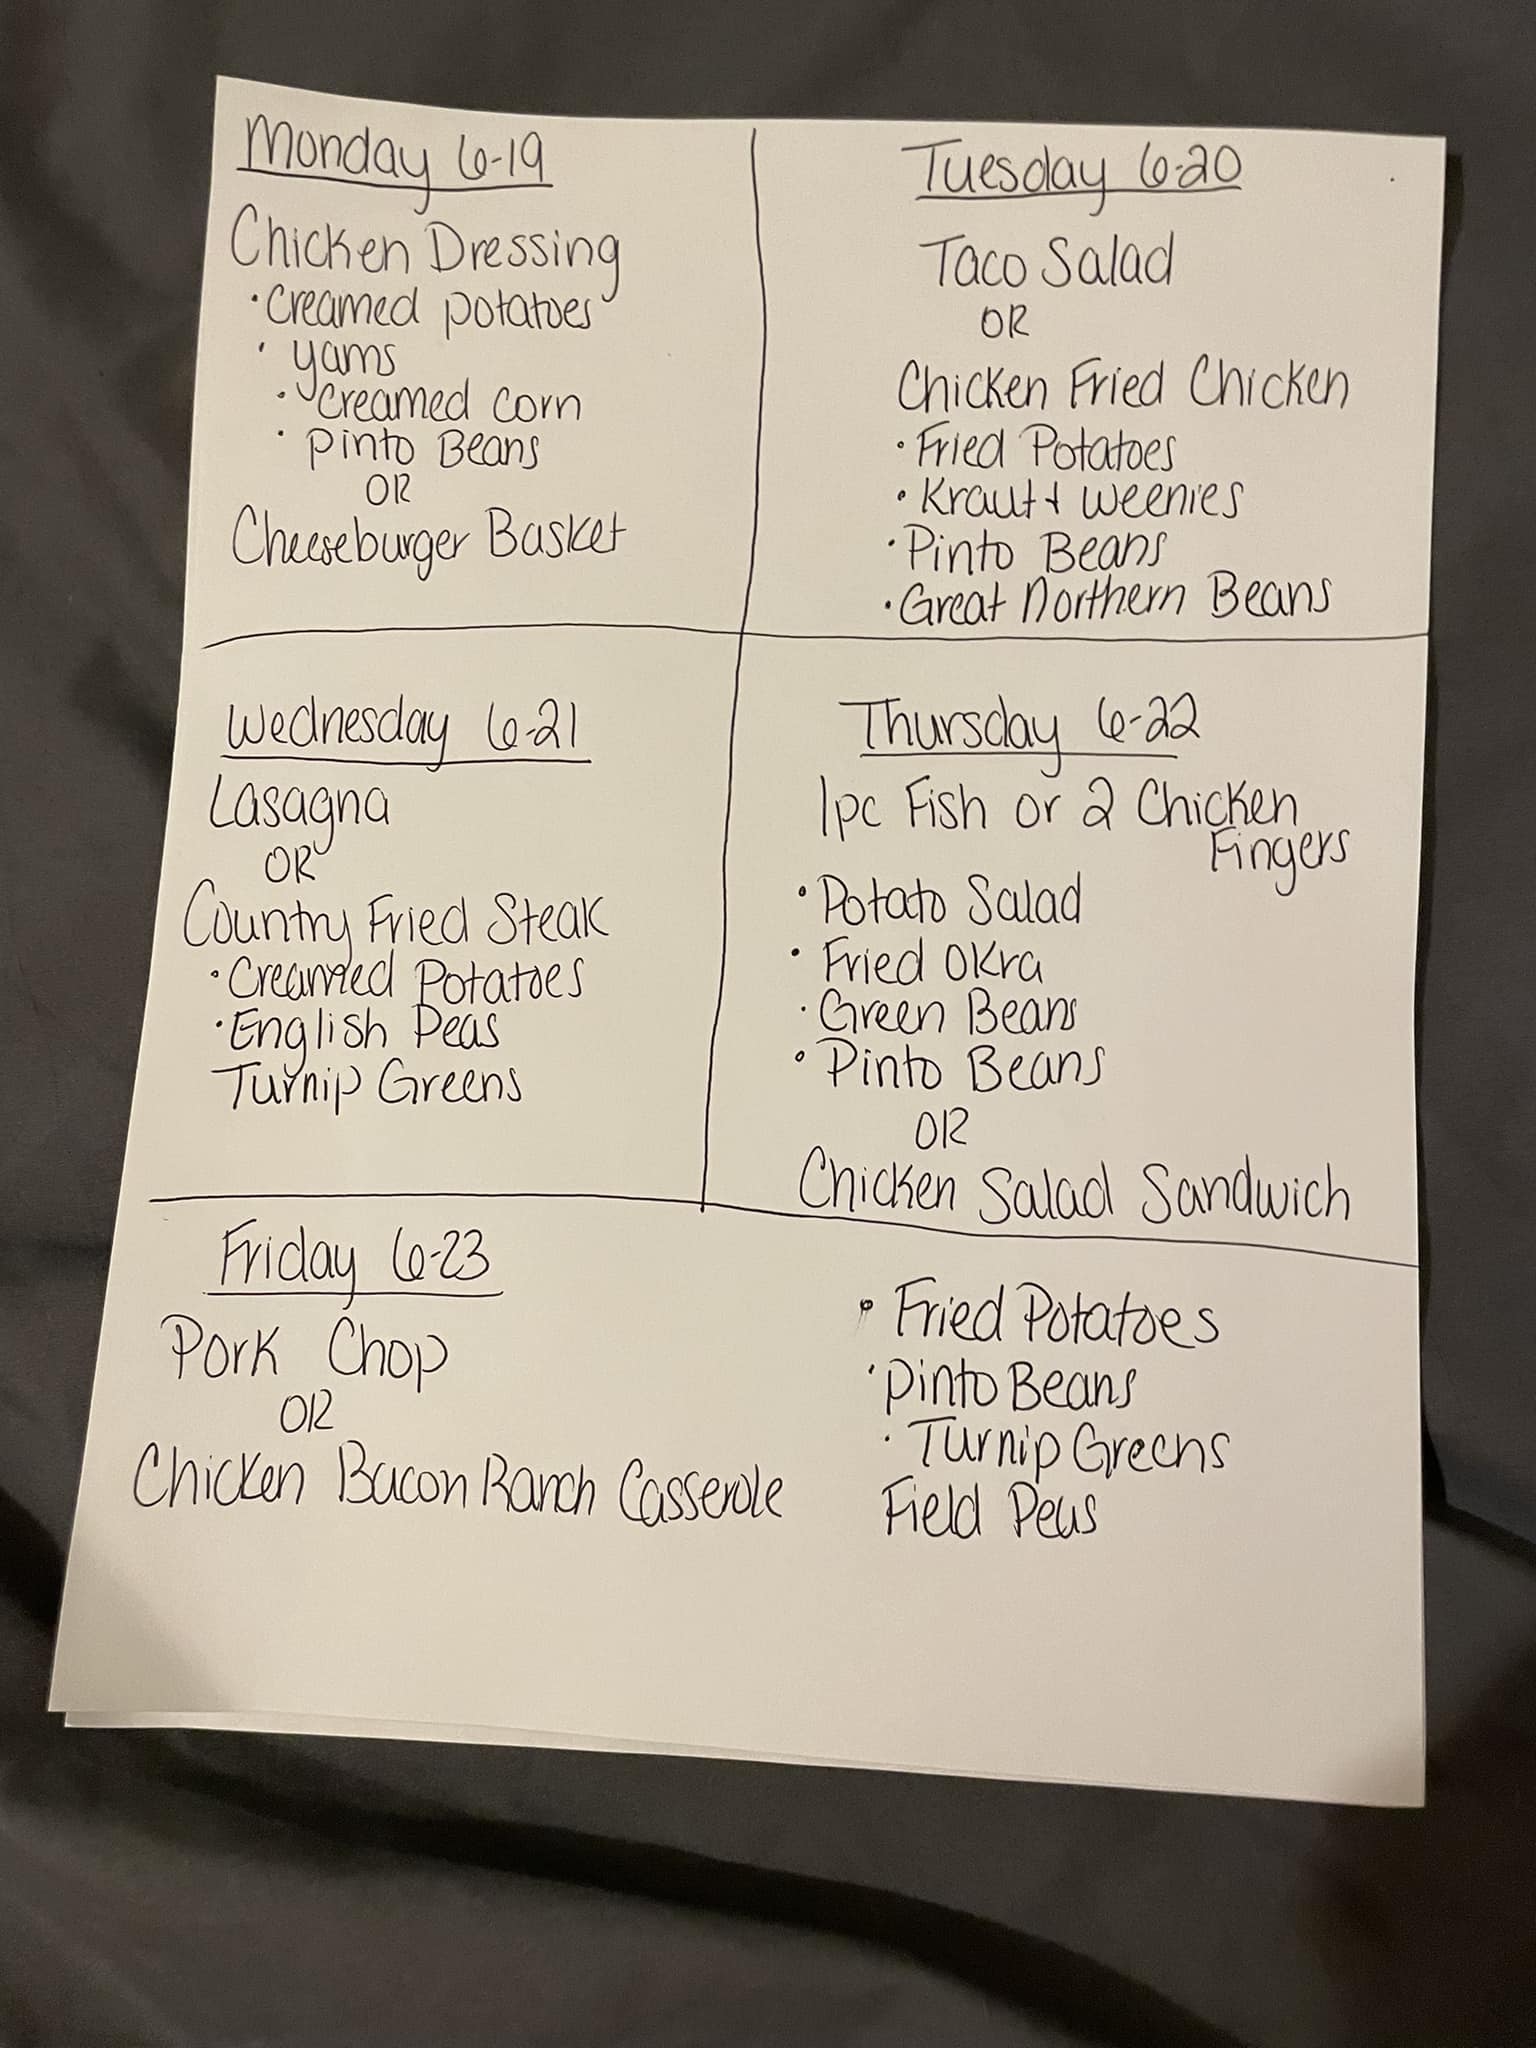 Monday 6-19
Chicken Dressing
• Creamed potatoes
• yams
• Creamed corn
• pinto Beans
OR
Cheeseburger Basket
Tuesday 6-20
Taco Salad
OR
Chicken Fried Chicken
• Fried Potatoes
• Kraut + weenies
• Pinto Beans
• Great Northern Beans
Wednesday 6-21
Lasagna
OR
Country Fried Steak
• Creamed Potatoes
• English Peas
Turnip Greens
Thursday 6-22
1pc Fish or 2 Chicken
Fingers
• Potato Salad
• Fried Okra
• Green Beans
• Pinto Beans
OR
Chicken Salad Sandwich
Friday 6-23
Pork Chop
OR
Chicken Bacon Ranch Casserole
• Fried Potatoes
• pinto Beans
• Turnip Greens
Field Peas